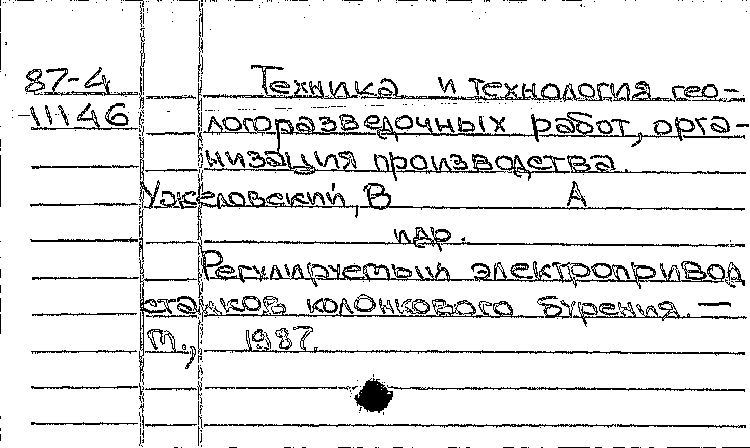 87-4 Техника и технология гео-
11146 логоразведочных работ, орга-
низация производства.
Ужеловский, В А
и др.
Регулируемый электропривод
станков колонкового бурения. —
М., 1987.